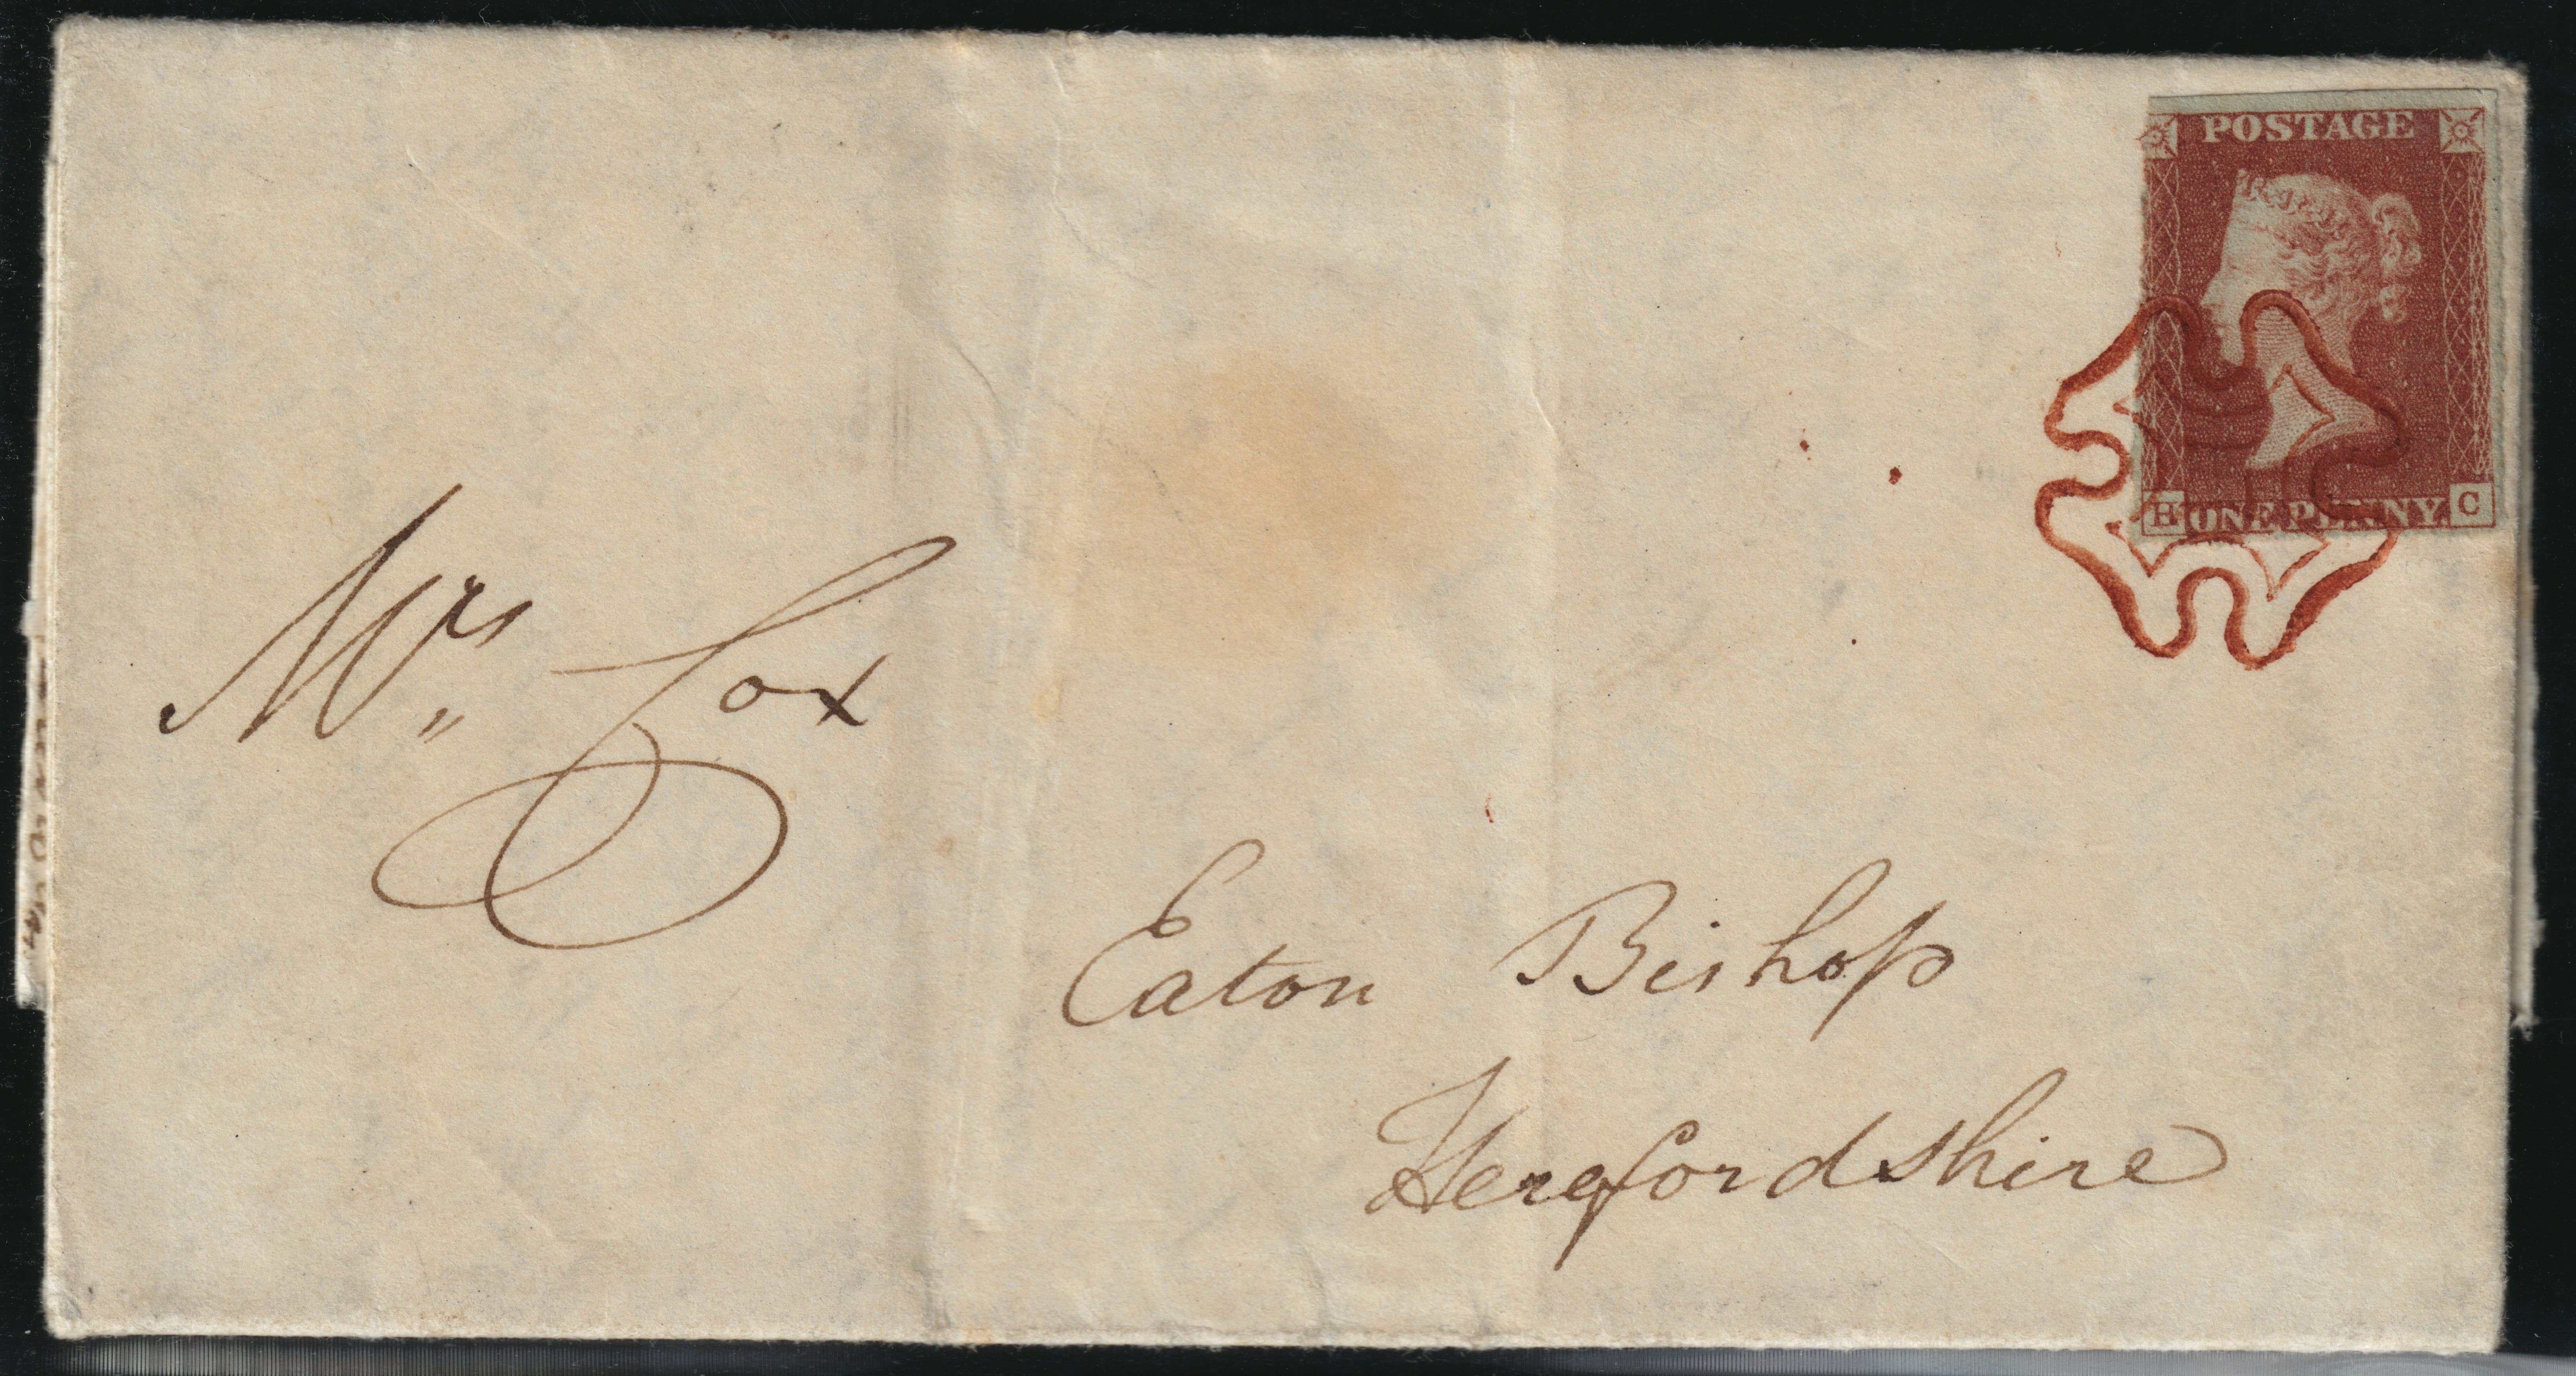 POSTAGE
H ONE PENNY C
Mrs
Eaton Bishop
Herefordshire